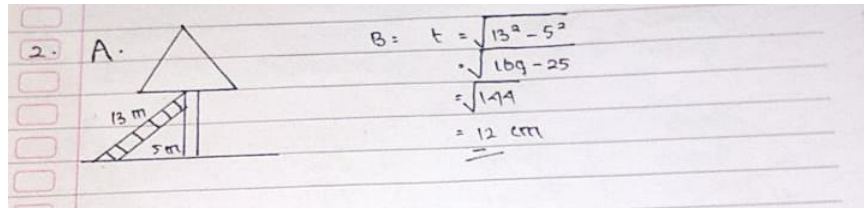 2. A.
13 m
5 m
B = t = √13² - 5²
= √169 - 25
= √144
= 12 cm